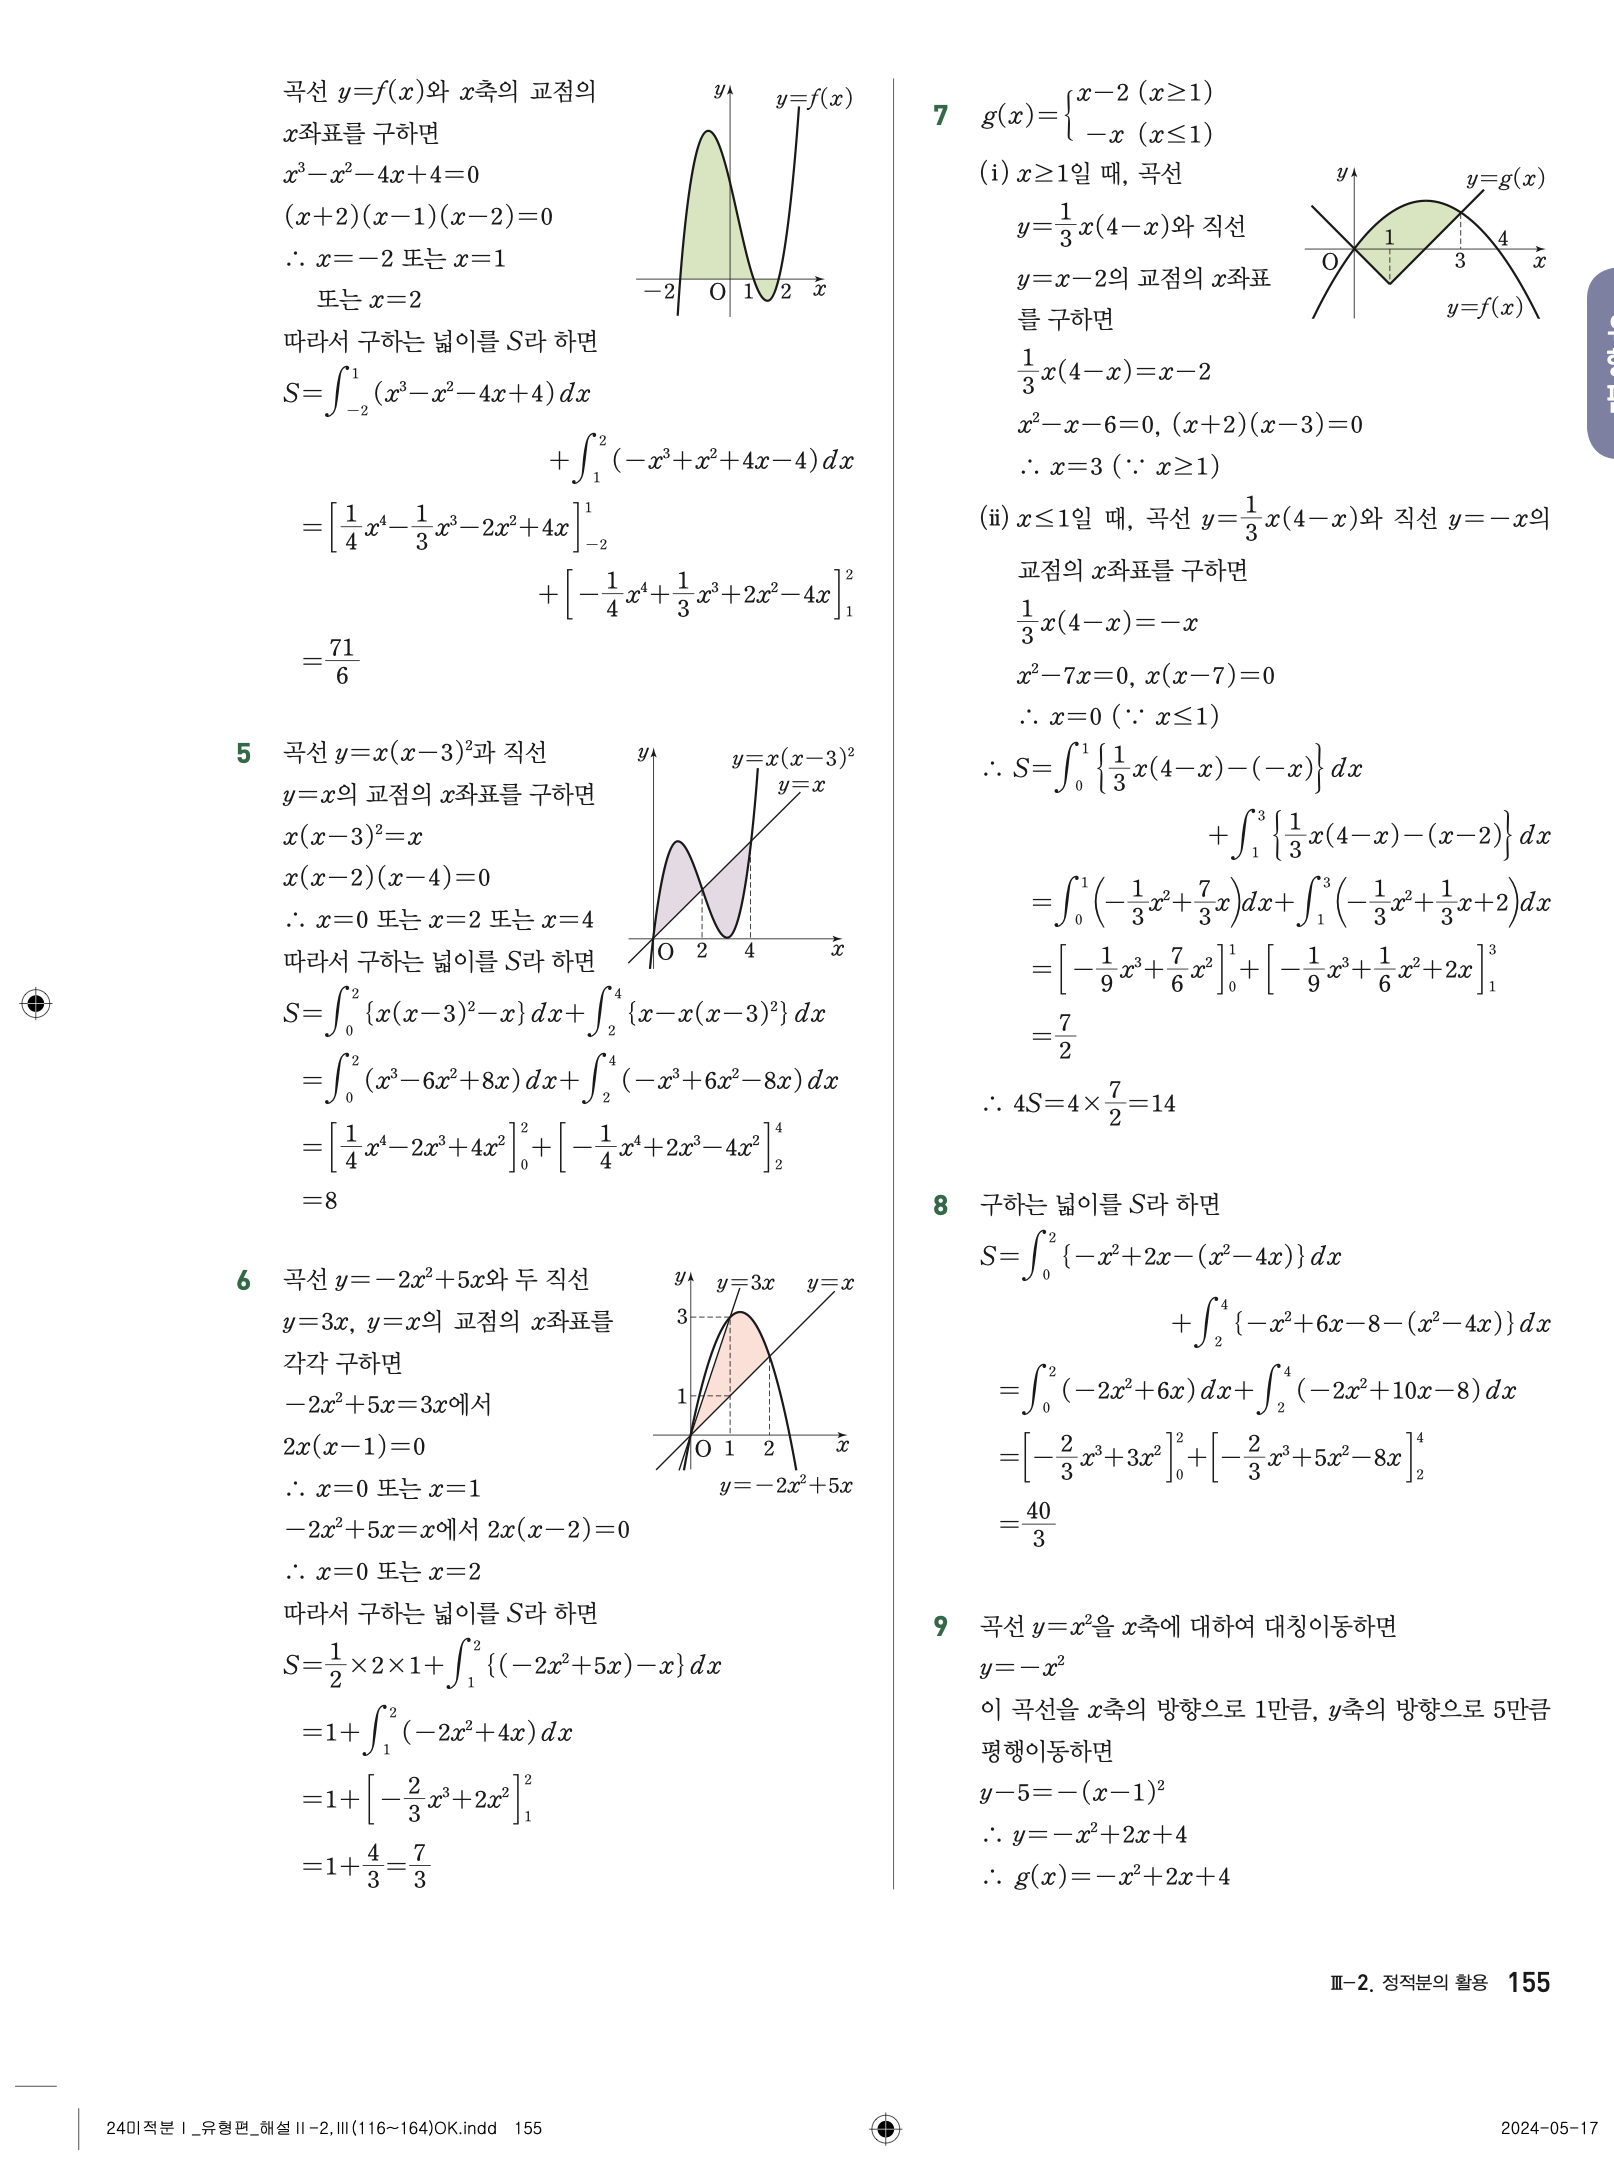 곡선 y=f(x)와 x축의 교점의
x좌표를 구하면
x³-x²-4x+4=0
(x+2)(x-1)(x-2)=0
∴ x=-2 또는 x=1
또는 x=2
따라서 구하는 넓이를 S라 하면
S=∫₋₂¹ (x³-x²-4x+4)dx
+∫₁² (-x³+x²+4x-4)dx
=[1/4 x⁴-1/3 x³-2x²+4x]₋₂¹
+[-1/4 x⁴+1/3 x³+2x²-4x]₁²
=71/6
y
y=f(x)
-2 O 1 2 x
5 곡선 y=x(x-3)²과 직선
y=x의 교점의 x좌표를 구하면
x(x-3)²=x
x(x-2)(x-4)=0
∴ x=0 또는 x=2 또는 x=4
따라서 구하는 넓이를 S라 하면
S=∫₀² {x(x-3)²-x}dx+∫₂⁴ {x-x(x-3)²}dx
=∫₀² (x³-6x²+8x)dx+∫₂⁴ (-x³+6x²-8x)dx
=[1/4 x⁴-2x³+4x²]₀²+[-1/4 x⁴+2x³-4x²]₂⁴
=8
y
y=x(x-3)²
y=x
O 2 4 x
6 곡선 y=-2x²+5x와 두 직선
y=3x, y=x의 교점의 x좌표를
각각 구하면
-2x²+5x=3x에서
2x(x-1)=0
∴ x=0 또는 x=1
-2x²+5x=x에서 2x(x-2)=0
∴ x=0 또는 x=2
따라서 구하는 넓이를 S라 하면
S=1/2×2×1+∫₁² {(-2x²+5x)-x}dx
=1+∫₁² (-2x²+4x)dx
=1+[-2/3 x³+2x²]₁²
=1+4/3=7/3
y y=3x y=x
3
1
O 1 2 x
y=-2x²+5x
7 g(x)={x-2 (x≥1)
-x (x≤1)
(ⅰ) x≥1일 때, 곡선
y=1/3 x(4-x)와 직선
y=x-2의 교점의 x좌표
를 구하면
1/3 x(4-x)=x-2
x²-x-6=0, (x+2)(x-3)=0
∴ x=3 (∵ x≥1)
y
y=g(x)
1 4
O 3 x
y=f(x)
(ⅱ) x≤1일 때, 곡선 y=1/3 x(4-x)와 직선 y=-x의
교점의 x좌표를 구하면
1/3 x(4-x)=-x
x²-7x=0, x(x-7)=0
∴ x=0 (∵ x≤1)
∴ S=∫₀¹ {1/3 x(4-x)-(-x)}dx
+∫₁³ {1/3 x(4-x)-(x-2)}dx
=∫₀¹ (-1/3 x²+7/3 x)dx+∫₁³ (-1/3 x²+1/3 x+2)dx
=[-1/9 x³+7/6 x²]₀¹+[-1/9 x³+1/6 x²+2x]₁³
=7/2
∴ 4S=4×7/2=14
8 구하는 넓이를 S라 하면
S=∫₀² {-x²+2x-(x²-4x)}dx
+∫₂⁴ {-x²+6x-8-(x²-4x)}dx
=∫₀² (-2x²+6x)dx+∫₂⁴ (-2x²+10x-8)dx
=[-2/3 x³+3x²]₀²+[-2/3 x³+5x²-8x]₂⁴
=40/3
9 곡선 y=x²을 x축에 대하여 대칭이동하면
y=-x²
이 곡선을 x축의 방향으로 1만큼, y축의 방향으로 5만큼
평행이동하면
y-5=-(x-1)²
∴ y=-x²+2x+4
∴ g(x)=-x²+2x+4
Ⅲ-2. 정적분의 활용 155
24미적분Ⅰ_유형편_해설Ⅱ-2,Ⅲ(116~164)OK.indd 155
2024-05-17